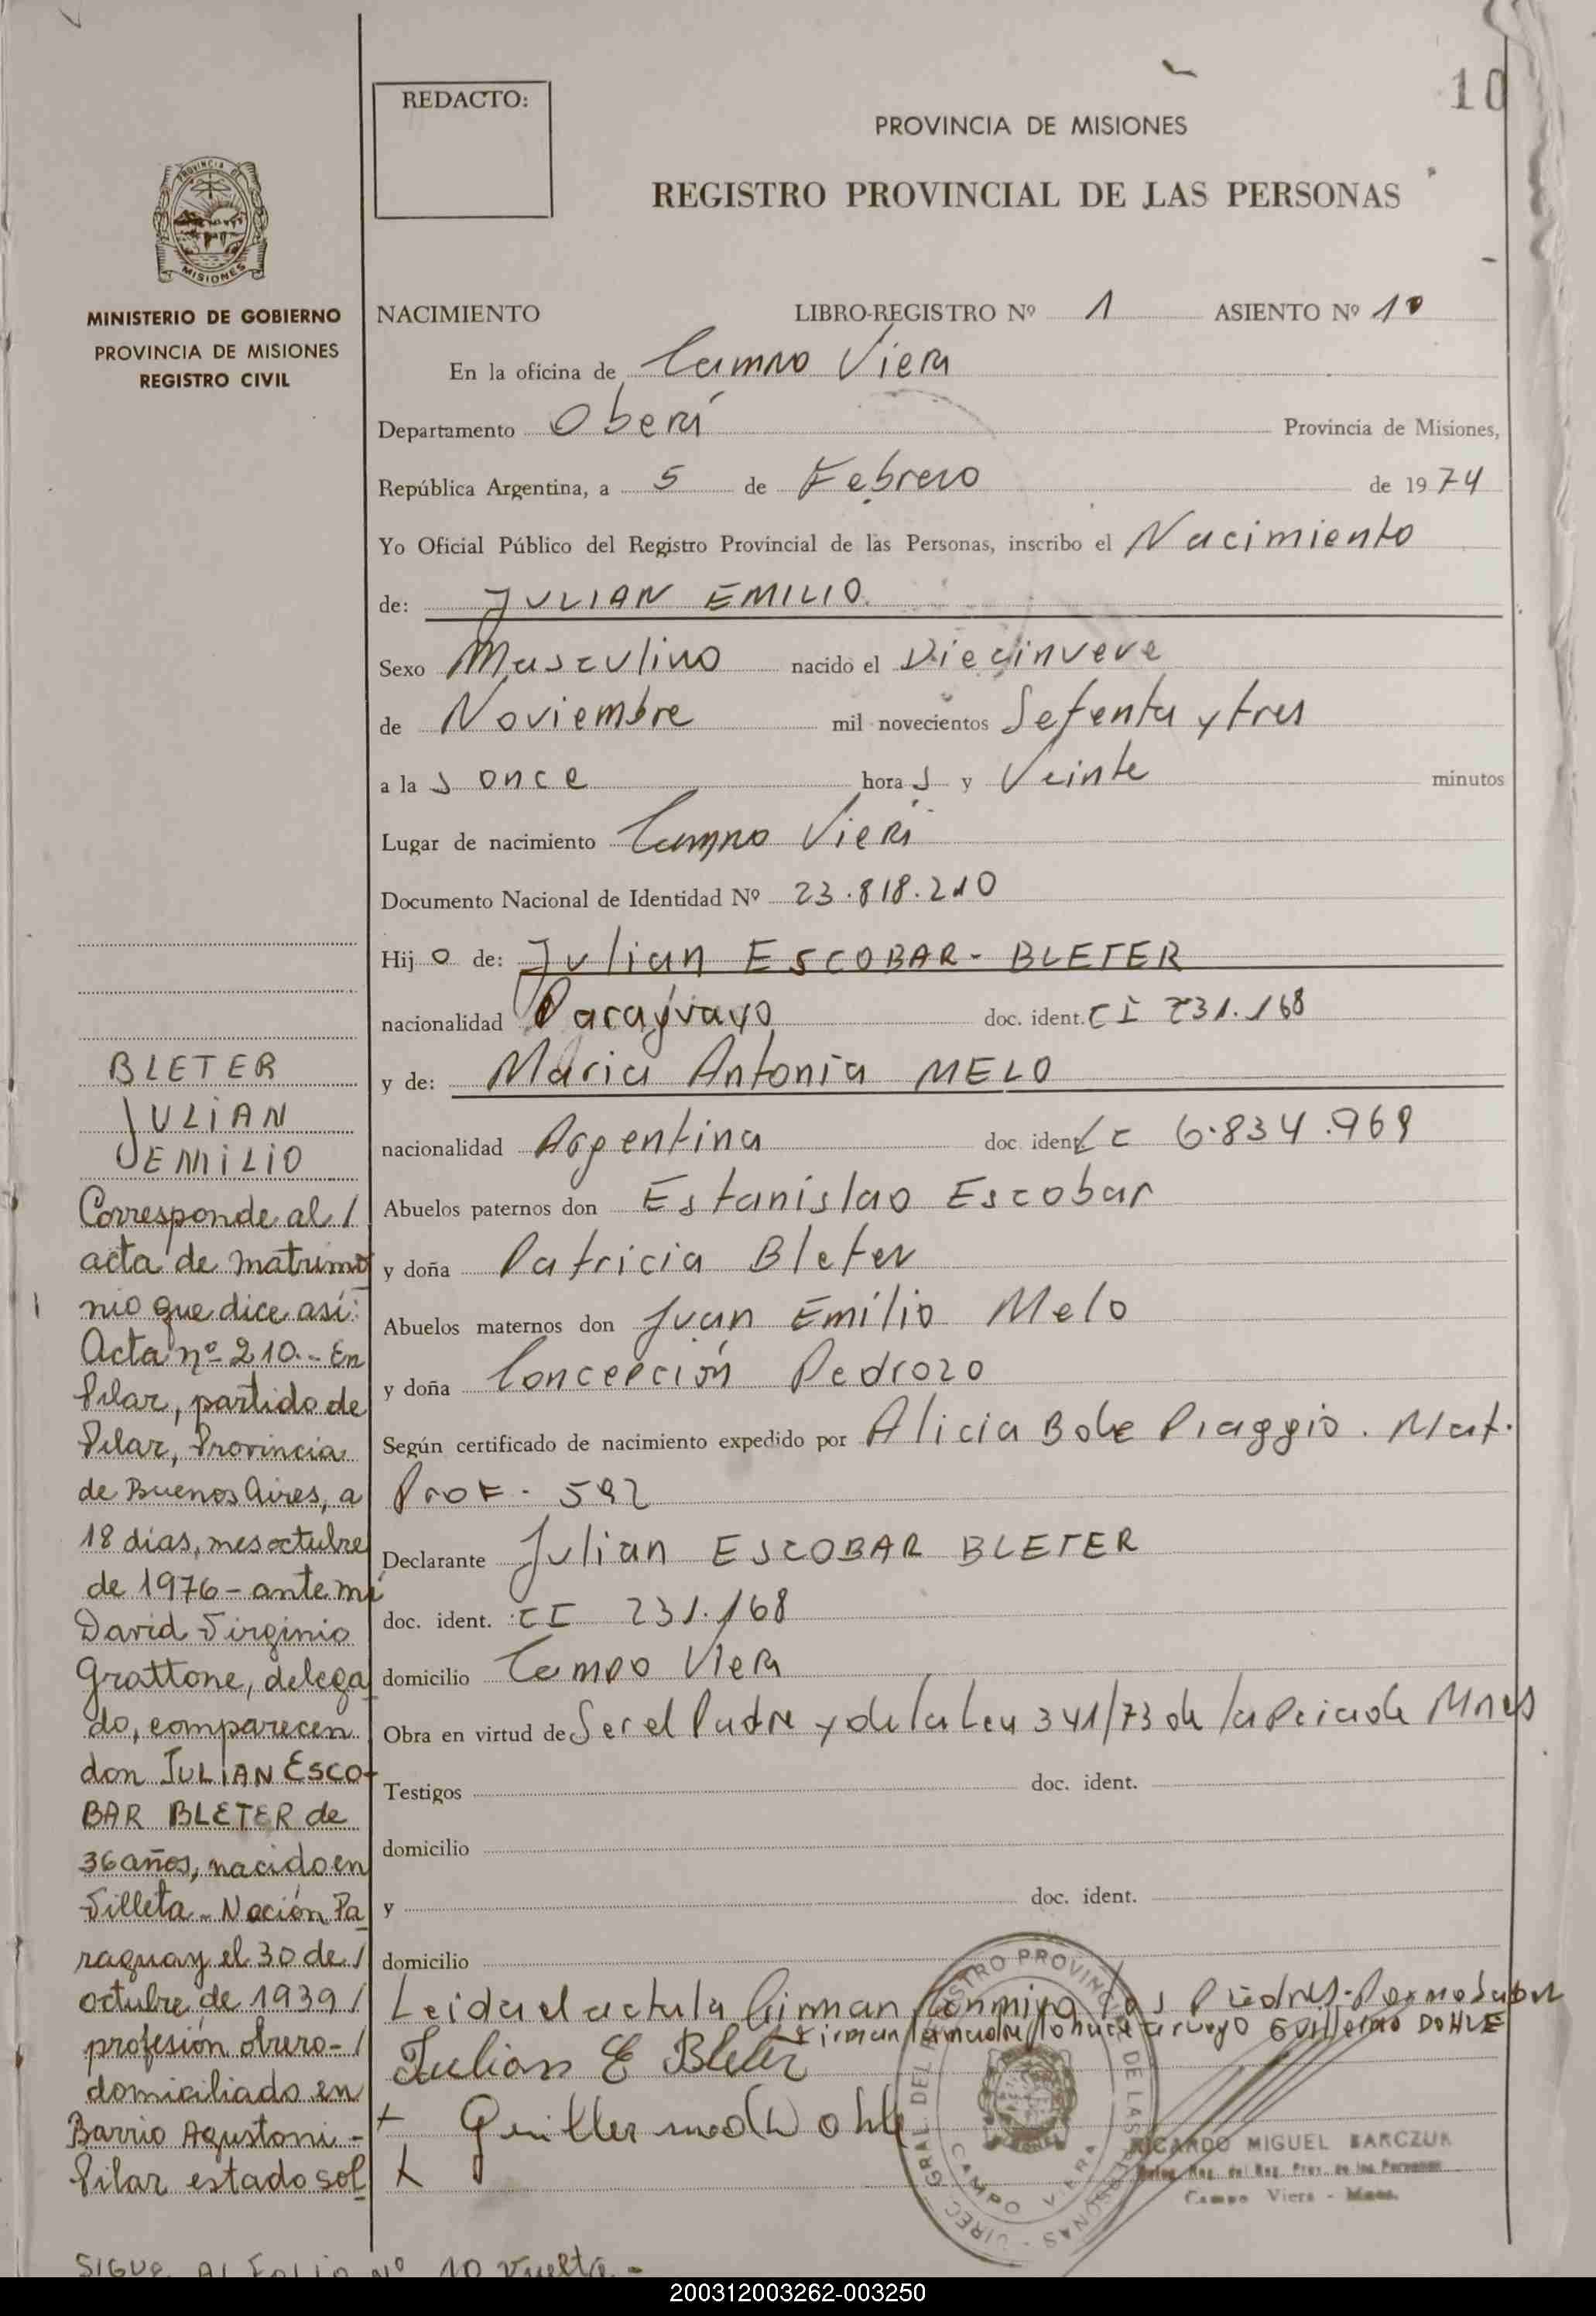 10
REDACTO:
PROVINCIA DE MISIONES
REGISTRO PROVINCIAL DE LAS PERSONAS
PROVINCIA DE
MISIONES
MINISTERIO DE GOBIERNO
PROVINCIA DE MISIONES
REGISTRO CIVIL
NACIMIENTO LIBRO-REGISTRO Nº 1 ASIENTO Nº 10
En la oficina de Campo Viera
Departamento Oberá Provincia de Misiones,
República Argentina, a 5 de Febrero de 1974
Yo Oficial Público del Registro Provincial de las Personas, inscribo el Nacimiento
de: JULIAN EMILIO
Sexo Masculino nacido el Diecinueve
de Noviembre mil novecientos Setenta y tres
a las once horas y Veinte minutos
Lugar de nacimiento Campo Viera
Documento Nacional de Identidad Nº 23.818.210
Hijo de: Julian ESCOBAR - BLETER
nacionalidad Paraguayo doc. ident. CI 231.168
y de: Maria Antonia MELO
nacionalidad Argentina doc. ident. LC 6.834.969
Abuelos paternos don Estanislao Escobar
y doña Patricia Bleter
Abuelos maternos don Juan Emilio Melo
y doña Concepción Pedrozo
Según certificado de nacimiento expedido por Alicia Piaggio. Mat.
Prof. 592
Declarante Julian ESCOBAR BLETER
doc. ident. CI 231.168
domicilio Campo Viera
Obra en virtud de Ser el Padre y de la Ley 341/73 de la Pcia de Mnes
Testigos doc. ident.
domicilio
y doc. ident.
domicilio
Leida el acta la firman los Padres
Firman la madre lo hace a ruego Guillermo DOHLE
Julian E Bleter
Guillermo Dohle
DIREC. GRAL DEL REGISTRO PROVINCIAL DE LAS PERSONAS
CAMPO VIERA
RICARDO MIGUEL BARCZUK
Deleg. Reg. del Reg. Prov. de las Personas
Campo Viera - Mnes.
BLETER
JULIAN
EMILIO
Corresponde al /
acta de matrimo
nio que dice así:
Acta nº 210.- En
Pilar, partido de
Pilar, Provincia
de Buenos Aires, a
18 dias, mes octubre
de 1976 - ante mi
David Virginio
Grattone, delega
do, comparecen
don JULIAN ESCO-
BAR BLETER de
36 años, nacido en
Villeta - Nación Pa
raguay el 30 de /
octubre de 1939 /
profesión obrero - /
domiciliado en
Barrio Agustoni -
Pilar estado sol
SIGUE AL FOLIO Nº 10 vuelta -
200312003262-003250